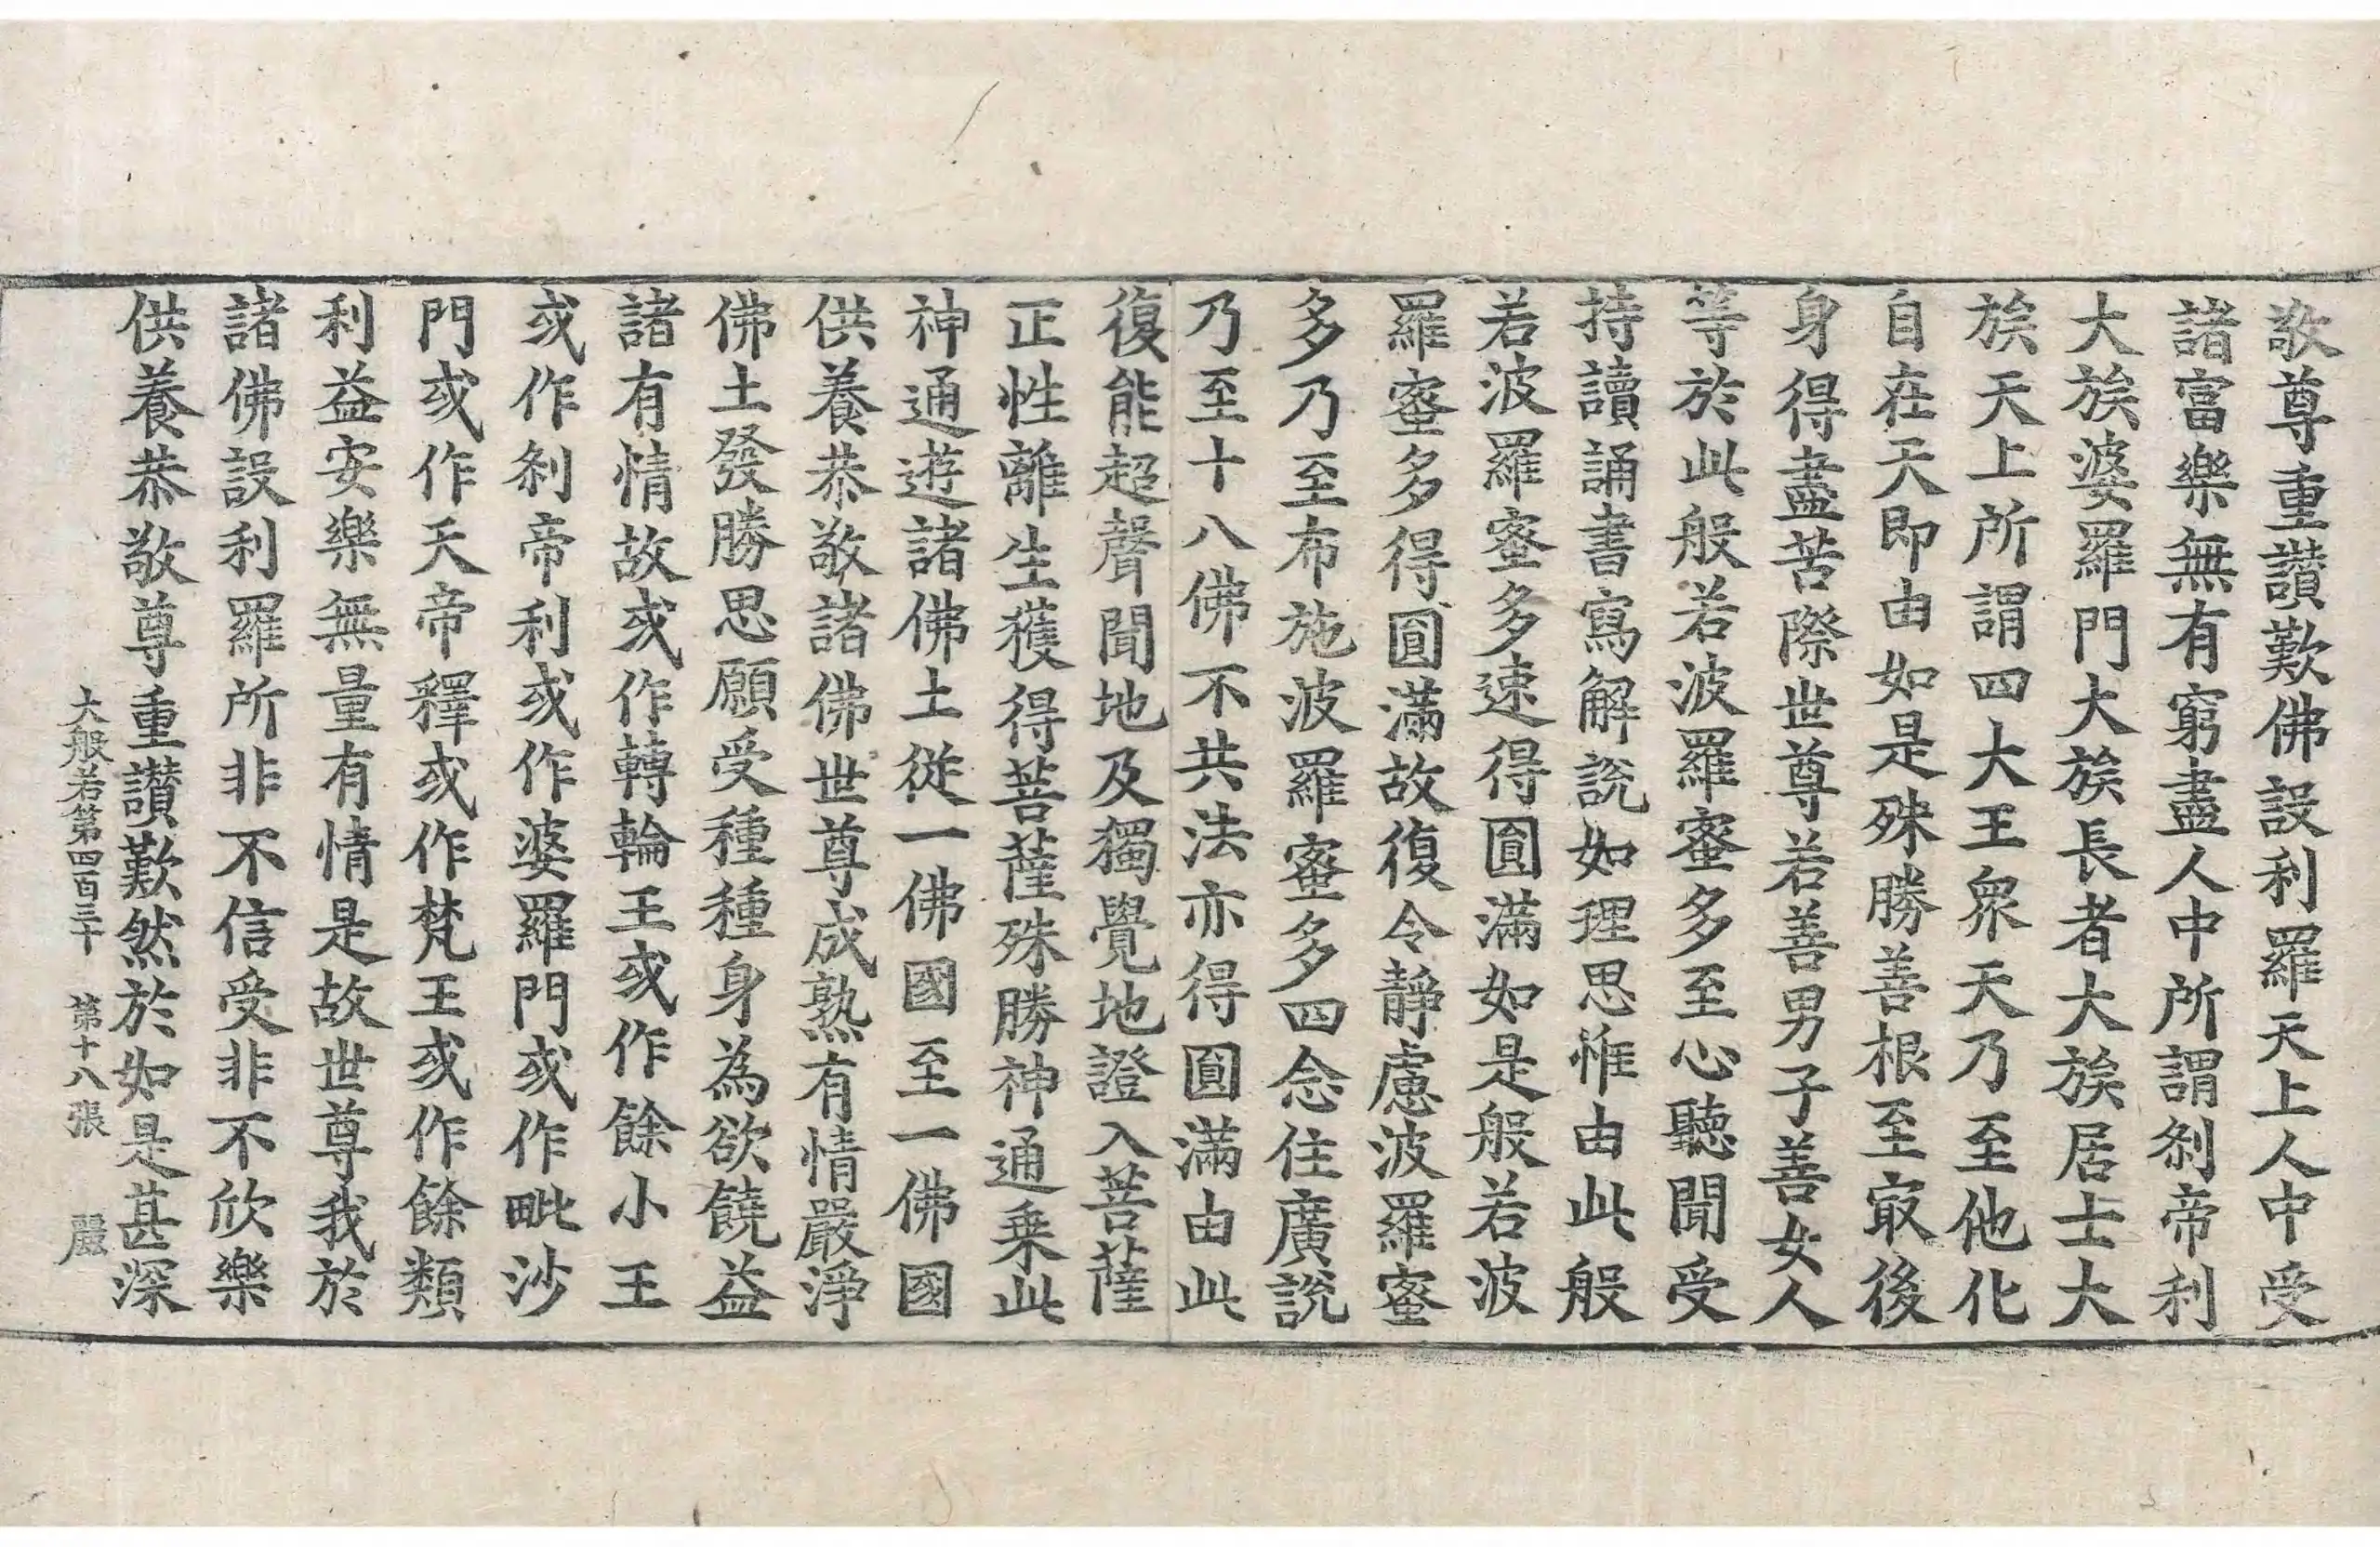 敬尊重讚歎佛設利羅天上人中受
諸富樂無有窮盡人中所謂刹帝利
大族婆羅門大族長者大族居士大
族天上所謂四大王衆天乃至他化
自在天即由如是殊勝善根至㝡後
身得盡苦際世尊若善男子善女人
等於此般若波羅蜜多至心聽聞受
持讀誦書寫解說如理思惟由此般
若波羅蜜多速得圓滿如是般若波
羅蜜多得圓滿故復令靜慮波羅蜜
多乃至布施波羅蜜多四念住廣說
乃至十八佛不共法亦得圓滿由此
復能超聲聞地及獨覺地證入菩薩
正性離生獲得菩薩殊勝神通乗此
神通遊諸佛土從一佛國至一佛國
供養恭敬諸佛世尊成熟有情嚴淨
佛土發勝思願受種種身為欲饒益
諸有情故或作轉輪王或作餘小王
或作刹帝利或作婆羅門或作毗沙
門或作天帝釋或作梵王或作餘類
利益安樂無量有情是故世尊我於
諸佛設利羅所非不信受非不欣樂
供養恭敬尊重讚歎然於如是甚深
大般若第四百三十 第十八張 麗